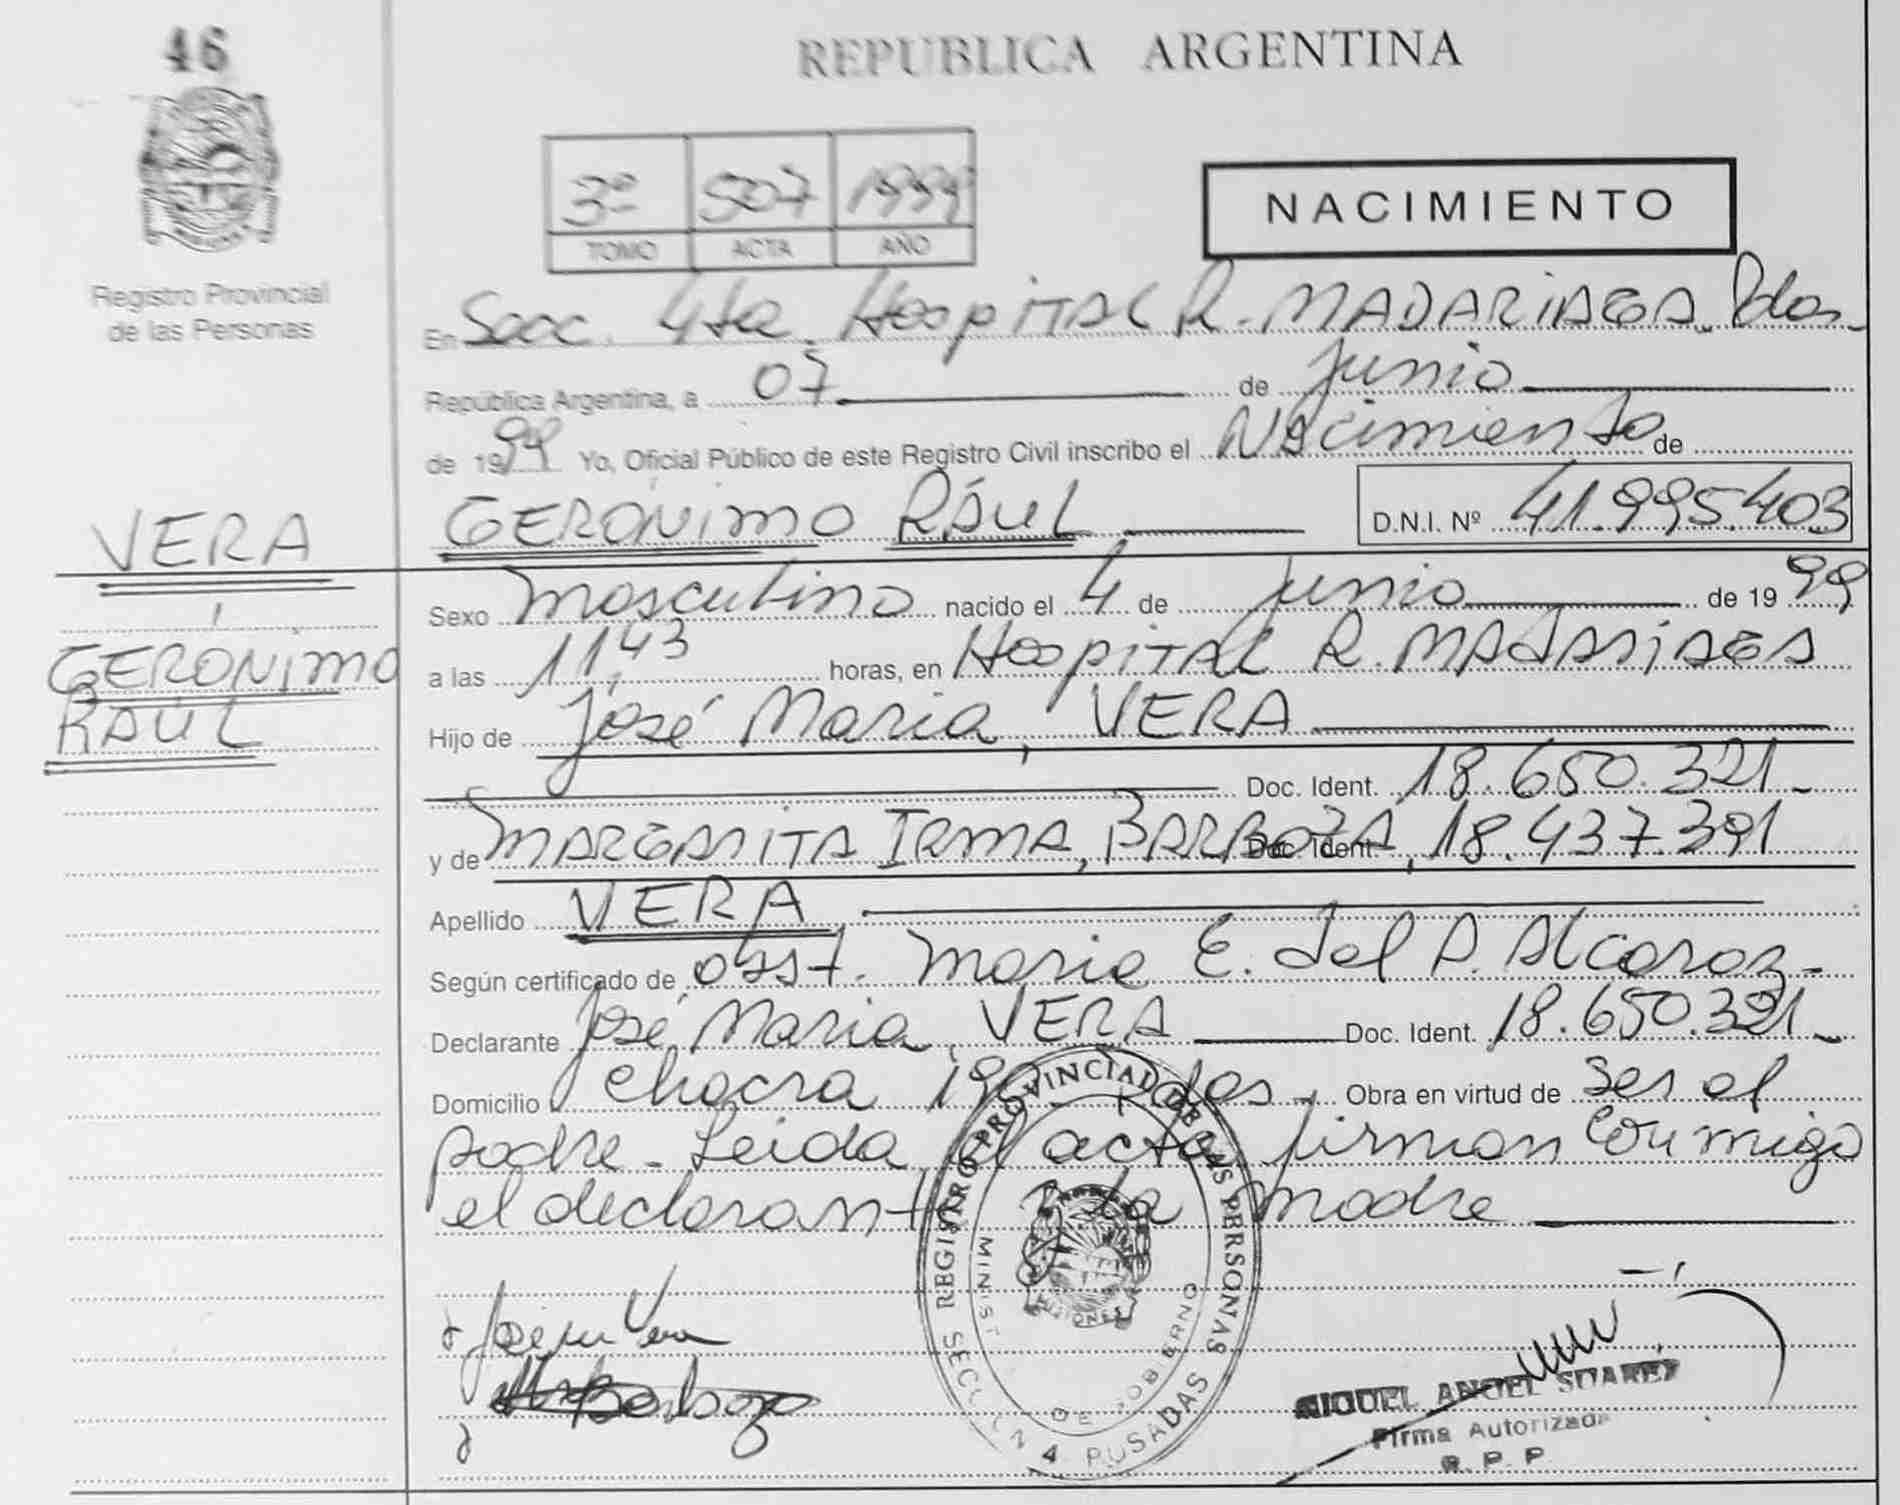 46
REPUBLICA ARGENTINA
3º 507 1999
TOMO ACTA AÑO
NACIMIENTO
Registro Provincial
de las Personas
En Secc. 4ta. Hospital R. MADARIAGA. Pdas.
República Argentina, a 07 de Junio
de 1999 Yo, Oficial Público de este Registro Civil inscribo el Nacimiento de
GERÓNIMO RAÚL D.N.I. Nº 41.995.403
VERA
GERÓNIMO
RAÚL
Sexo masculino nacido el 4 de Junio de 1999
a las 11,43 horas, en Hospital R. MADARIAGA
Hijo de José Maria, VERA
Doc. Ident. 18.650.321
y de MARGARITA IRMA, BARBOZA, Doc. Ident. 18.437.391
Apellido VERA
Según certificado de obst. Maria E. del P. Alcaraz
Declarante José Maria, VERA Doc. Ident. 18.650.321
Domicilio Chacra Pdas. Obra en virtud de ser el
padre. Leida el acta firman conmigo
el declarante y la madre
REGISTRO PROVINCIAL DE LAS PERSONAS
MINIST DE GOBIERNO
MISIONES
SECCION 4 POSADAS
Vera
Barboza
MIGUEL ANGEL SUAREZ
Firma Autorizada
R. P. P.